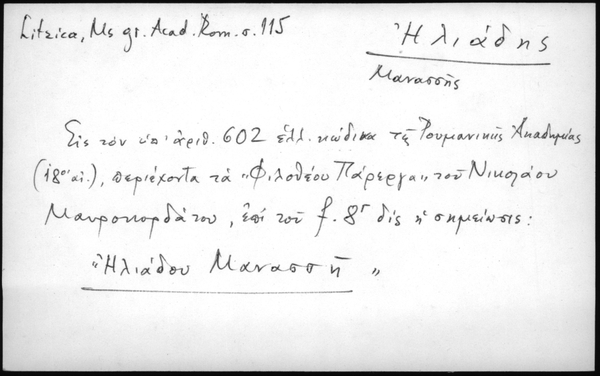 Litzica, Ms gr. Acad. Rom. σ. 115
Ἠλιάδης
Μανασσῆς
Εἰς τὸν ὑπ' ἀριθ. 602 ἑλλ. κώδικα τῆς Ρουμανικῆς Ἀκαδημίας
(18ου αἰ.), περιέχοντα τὰ "Φιλοθέου Πάρεργα" τοῦ Νικολάου
Μαυροκορδάτου, ἐπὶ τοῦ f. 8r δὶς ἡ σημείωσις:
"Ἠλιάδου Μανασσῆ"